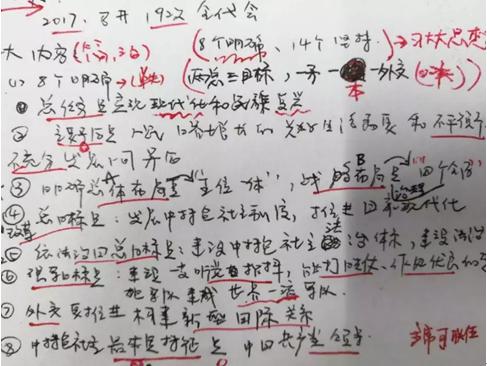 2017. 召开 19次 全代会
大 内容 (8个明确、14个坚持.)→习大大思想
(1) 8个明确→ ( 两点三目标,一军一本一外交
① 总任务是实现现代化和民族复兴
② 主要矛盾是人民日益增长的美好生活需要和不平衡不
充分发展之间矛盾
③ 明确总体布局是"五位一体",战略布局是"四个全面"
④ 总目标是:发展中特色社主制度,推进国家 治理 现代化
改革
⑤ 依法治国总目标是:建设中特色社主 法 治体,建设法治
⑥ 强军目标是:建设一支听党指挥,能打胜仗、作风优良的军
把军队建成世界一流军队.
⑦ 外交要推进构建新型国际关系
⑧ 中特色社主最本质特征是中国共产党领导 主席可联任